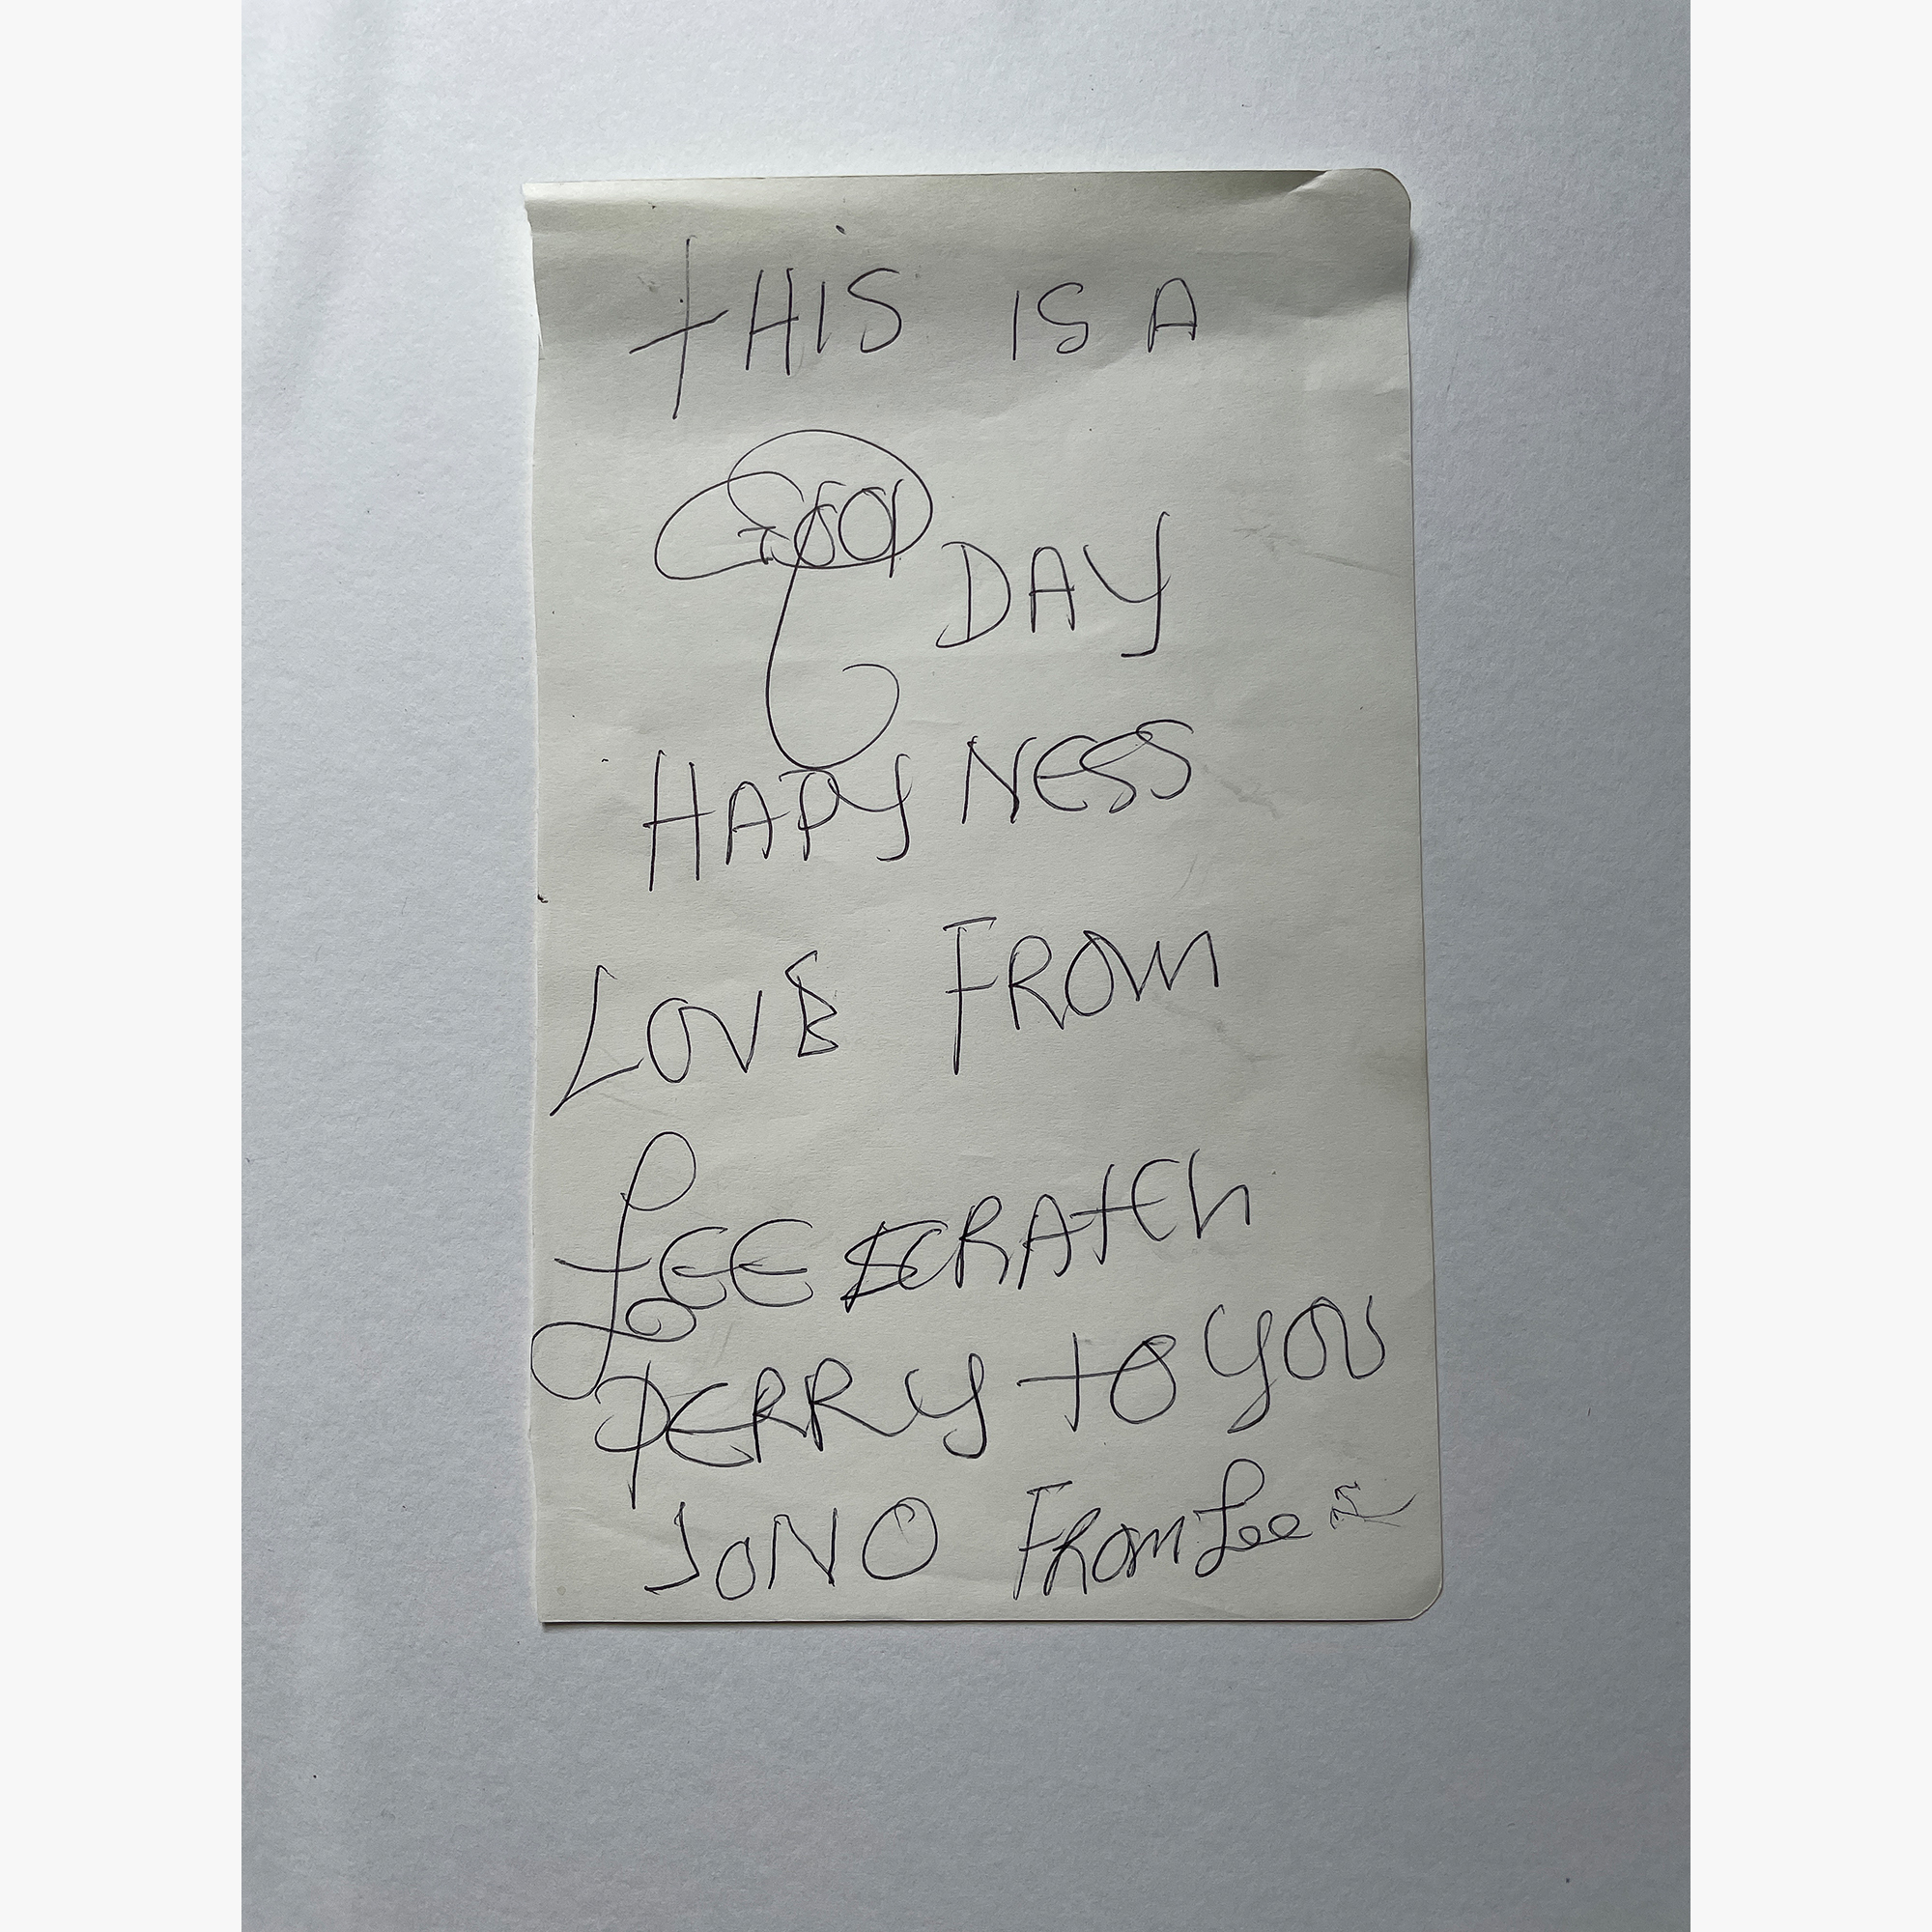 THIS IS A
GOOD DAY
HAPYNESS
LOVE FROM
LEE SCRATCH
PERRY TO YOU
JONO FROM Lee